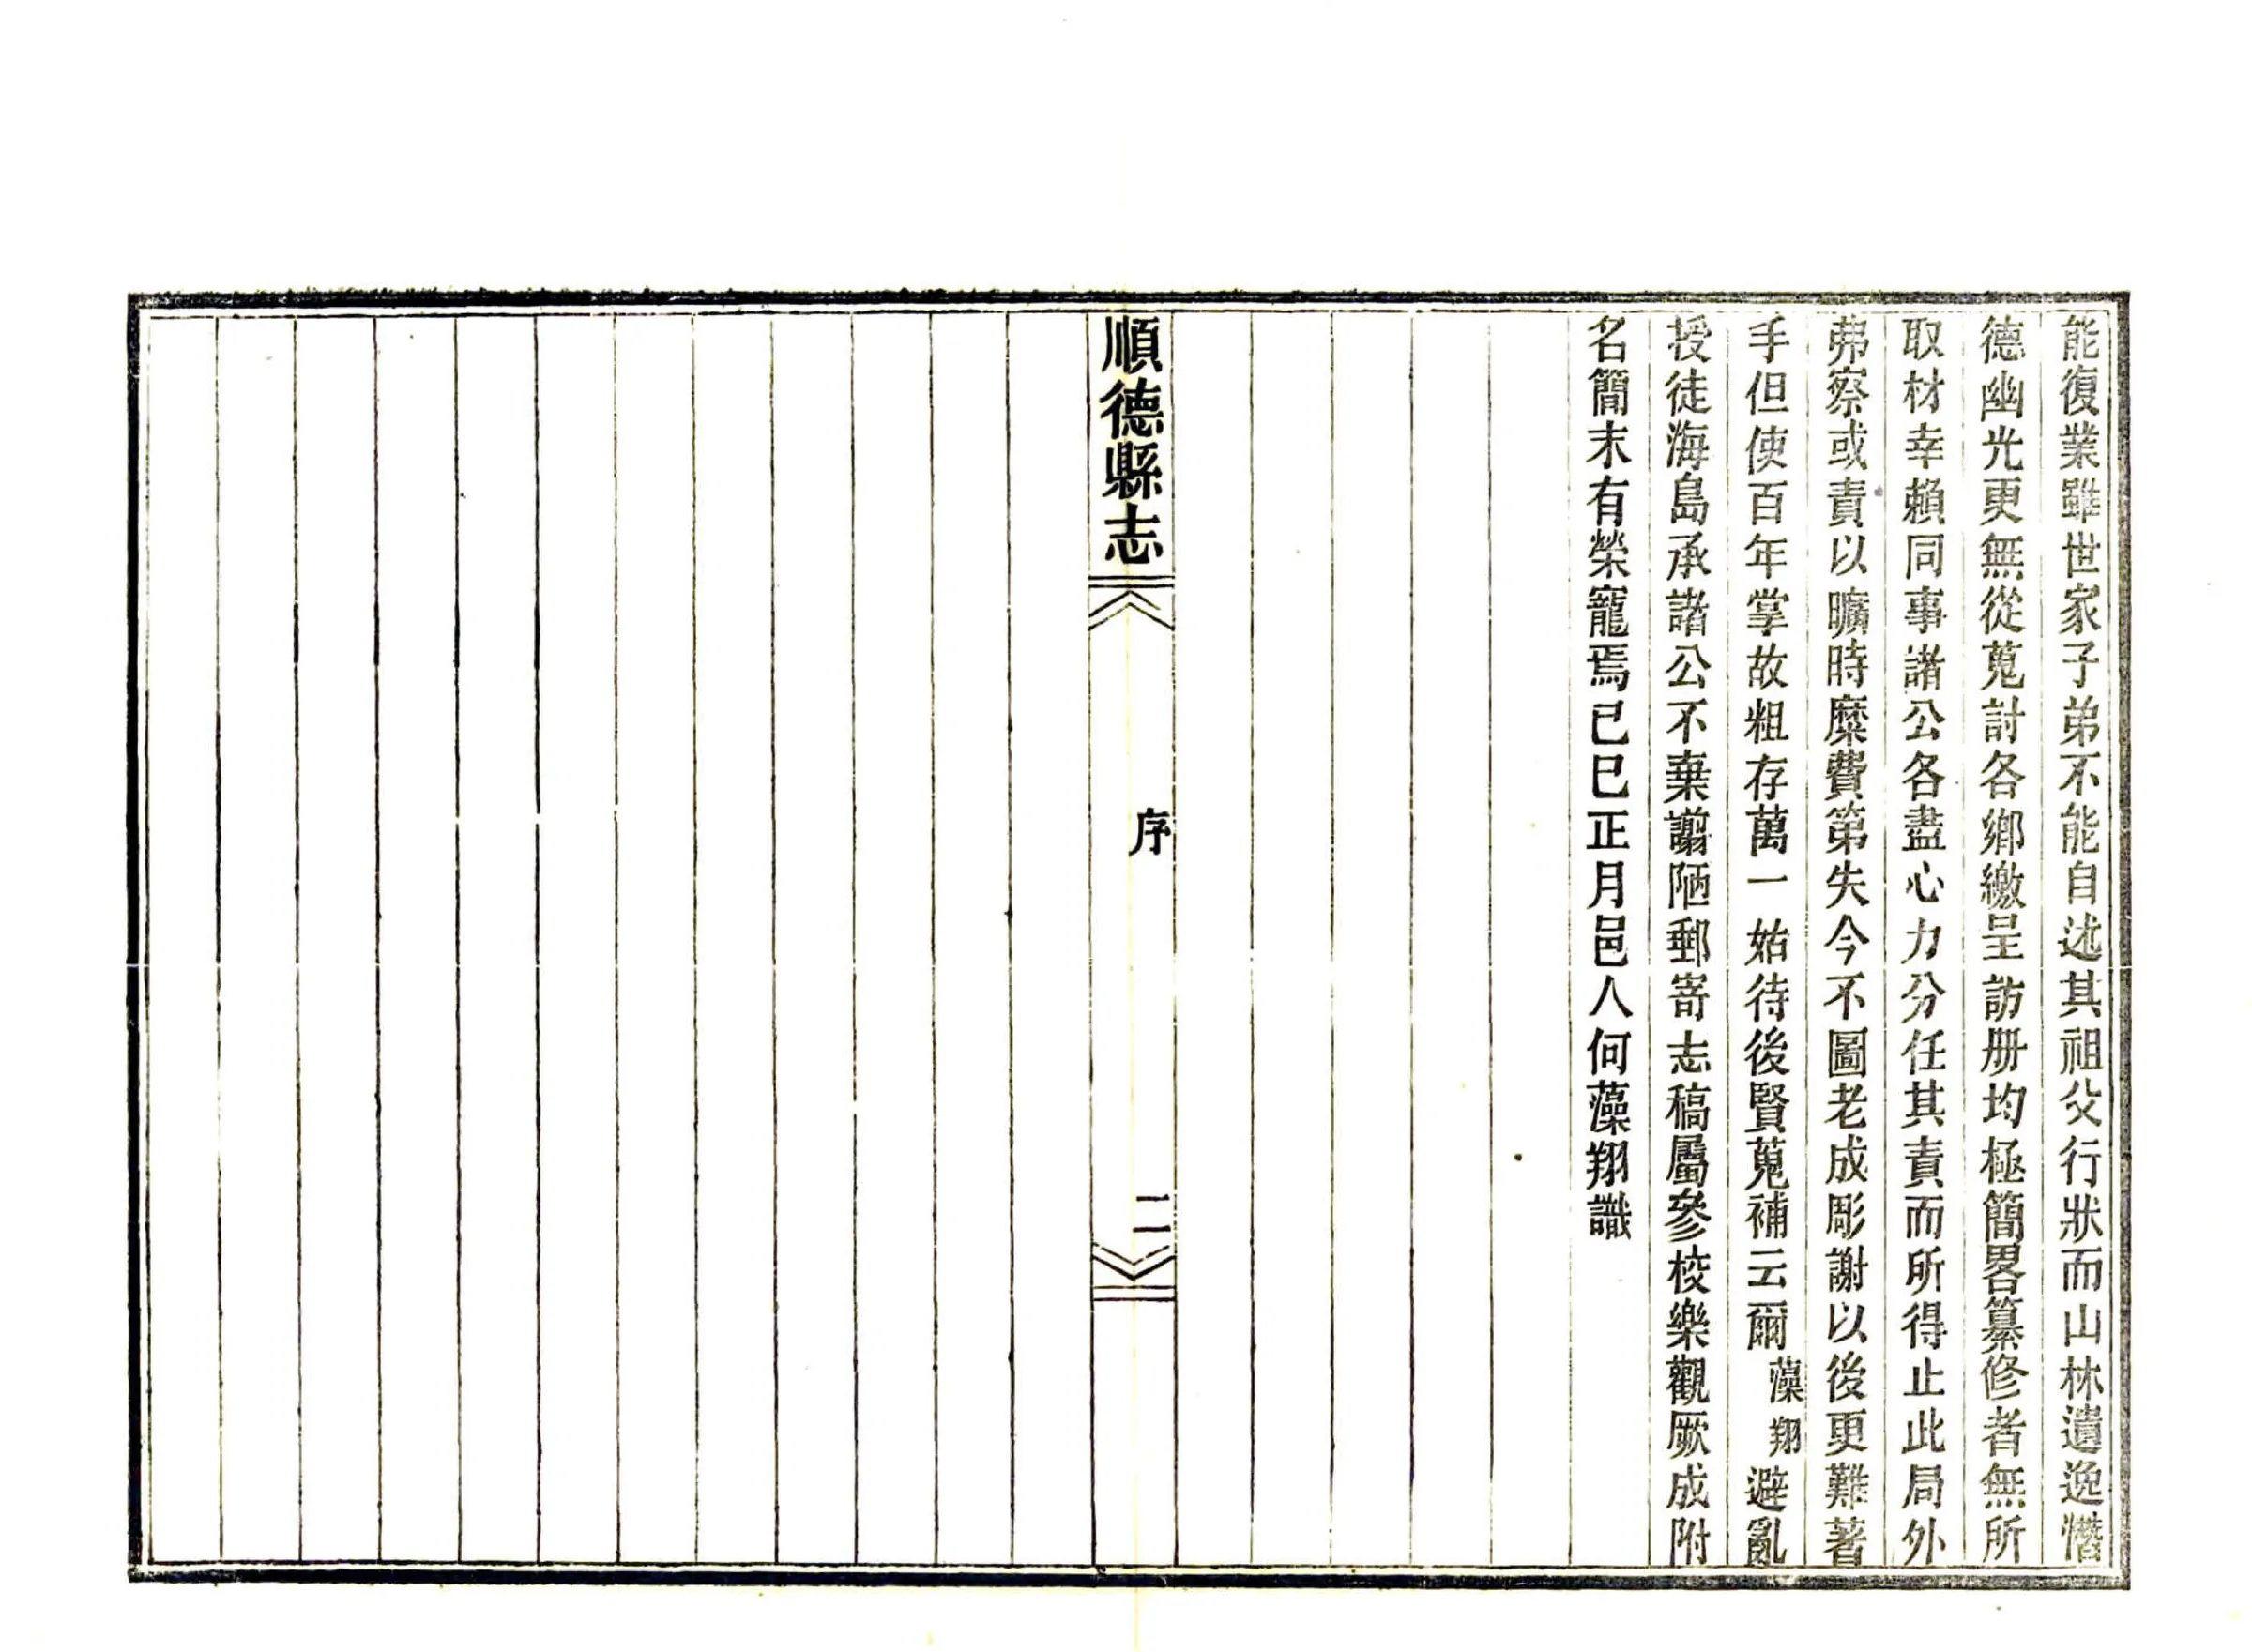 能復業雖世家子弟不能自述其祖父行狀而山林遺逸潛
德幽光更無從蒐討各鄉繳呈訪册均極簡畧纂修者無所
取材幸賴同事諸公各盡心力分任其責而所得止此局外
弗察或責以曠時糜費第失今不圖老成彫謝以後更難著
手但使百年掌故粗存萬一始待後賢蒐補云爾藻翔避亂
授徒海島承諸公不棄謭陋郵寄志稿屬參校樂觀厥成附
名簡末有榮寵焉己巳正月邑人何藻翔識
順德縣志
序
二